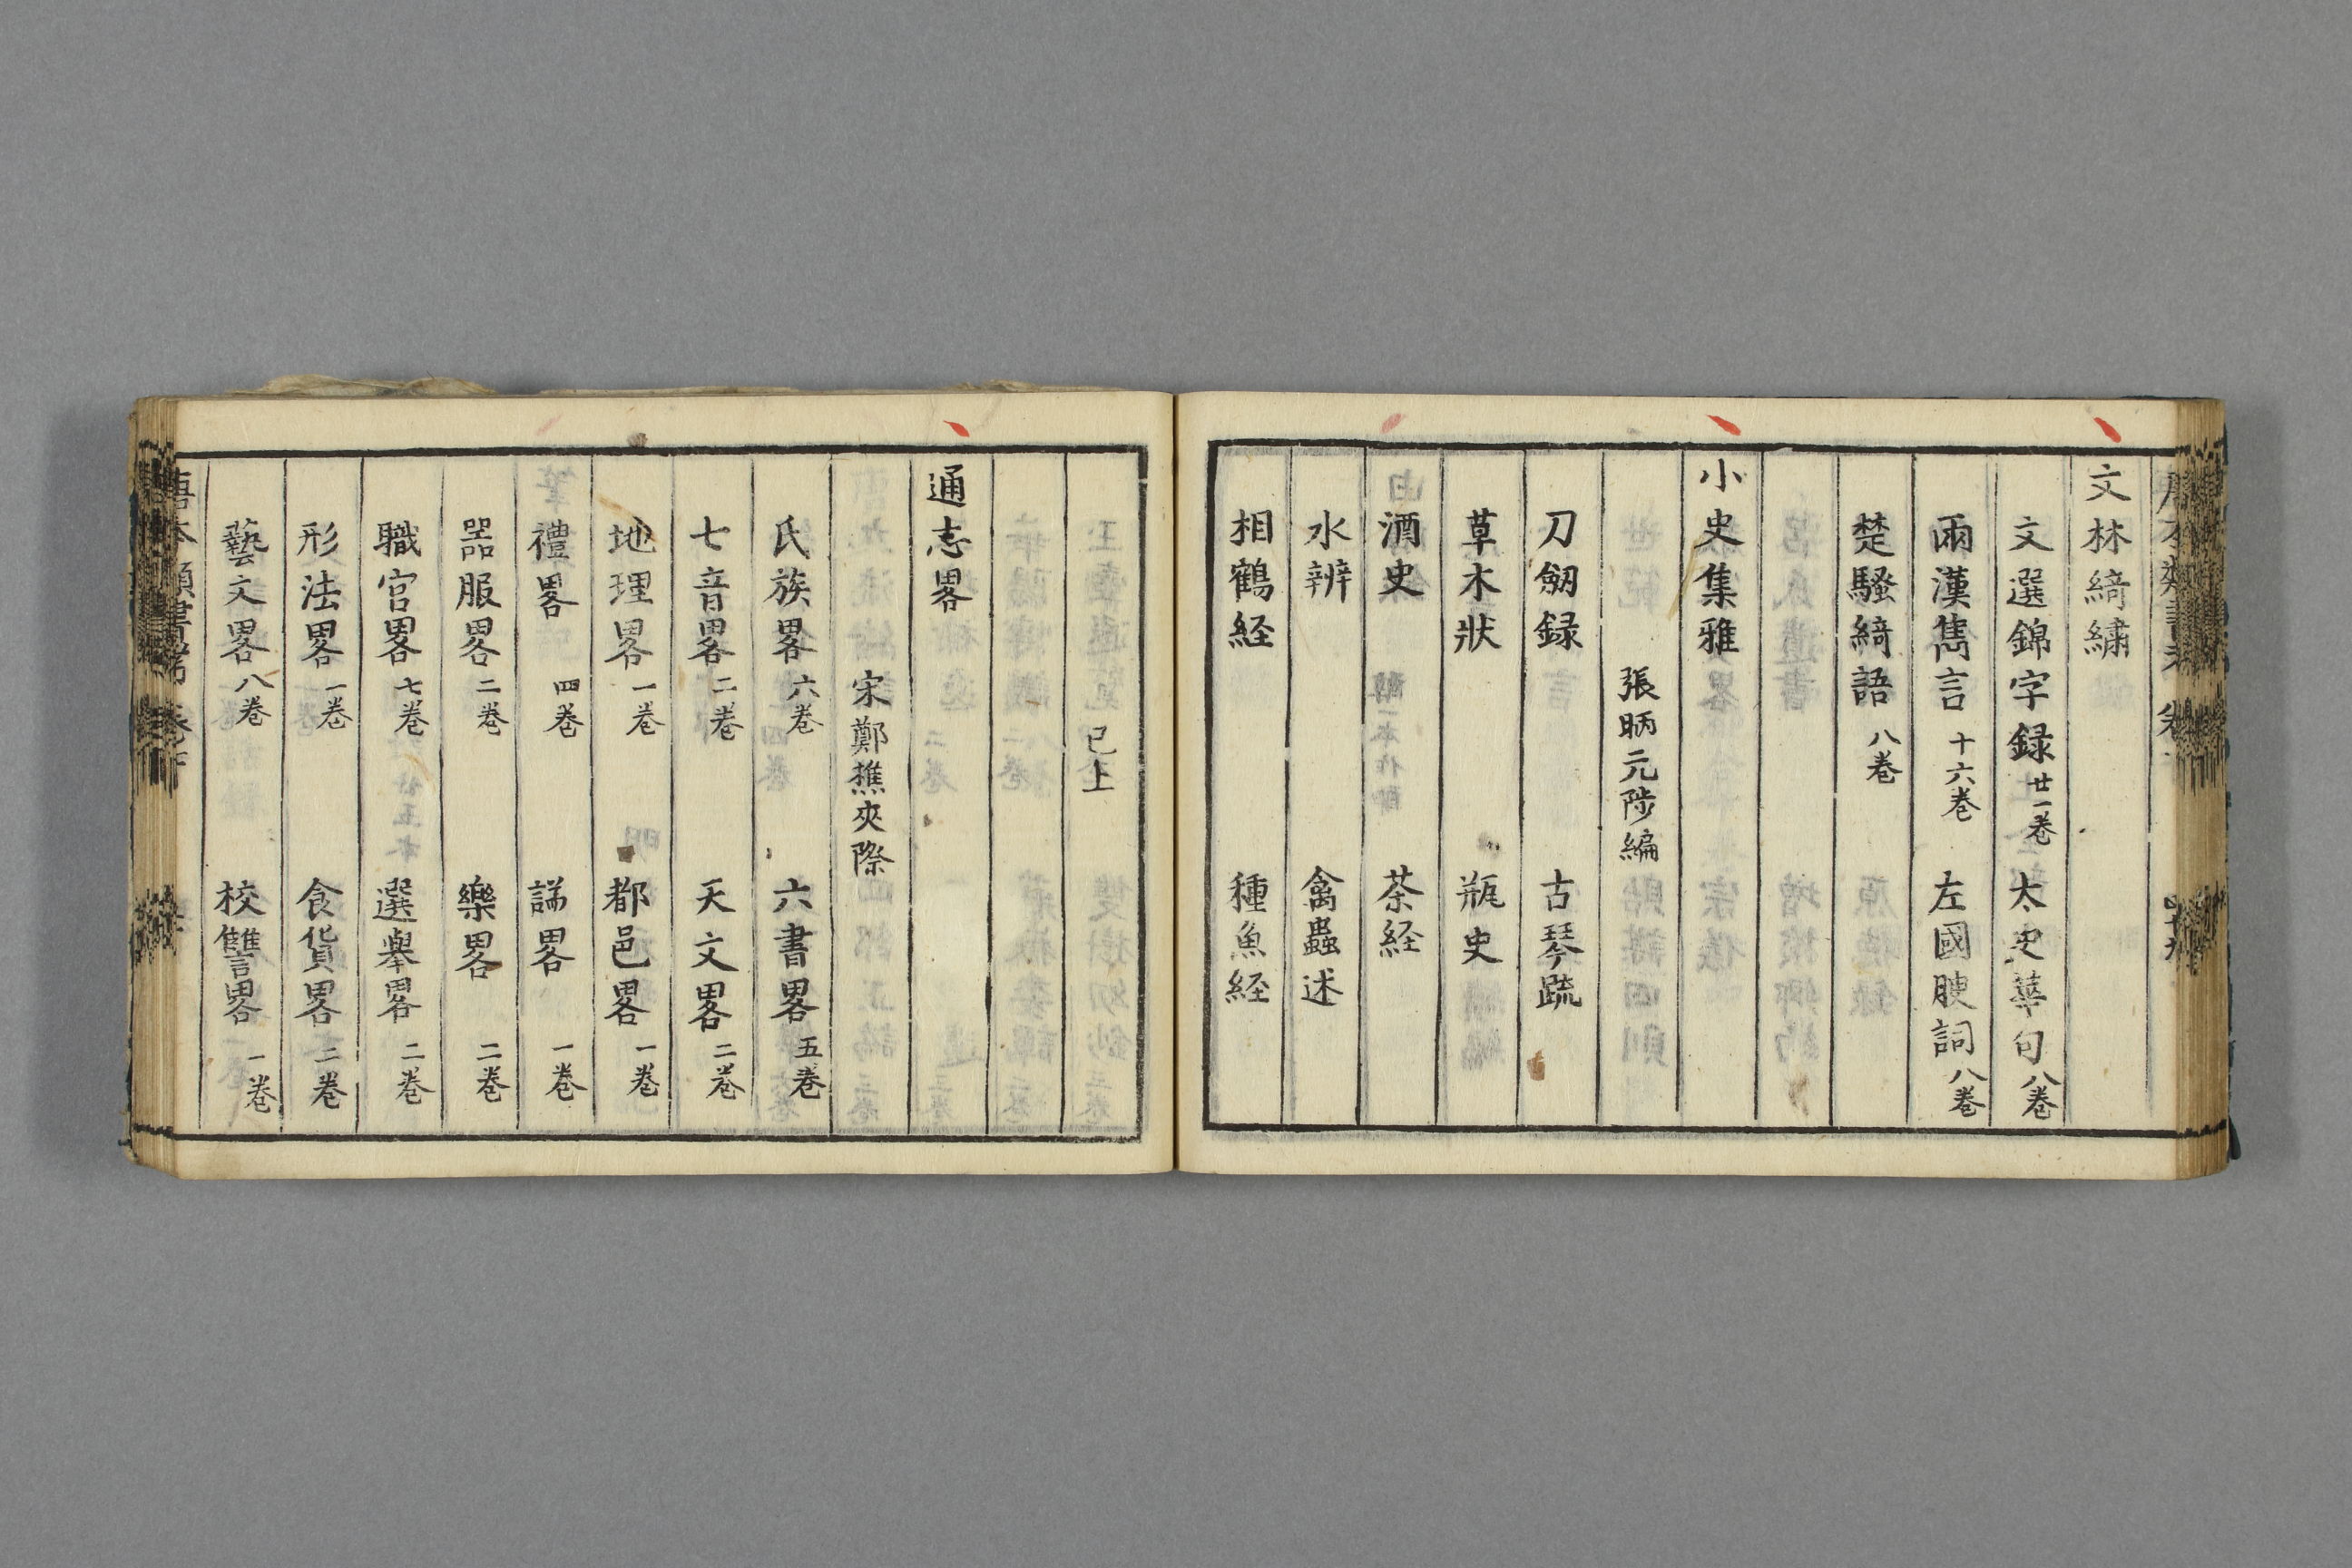 文林綺繡
文選錦字録 廿一巻 太史華句 八巻
兩漢雋言 十六巻 左國腴詞 八巻
楚騷綺語 八巻
小史集雅
張昞元陟編
刀劔録 古琴疏
草木狀 瓶史
酒史 茶経
水辨 禽蟲述
相鶴経 種魚経
已上
通志畧
宋鄭樵夾際
氏族畧 六巻 六書畧 五巻
七音畧 二巻 天文畧 二巻
地理畧 一巻 都邑畧 一巻
禮畧 四巻 謚畧 一巻
器服畧 二巻 樂畧 二巻
職官畧 七巻 選舉畧 二巻
形法畧 一巻 食貨畧 二巻
藝文畧 八巻 校讐畧 一巻